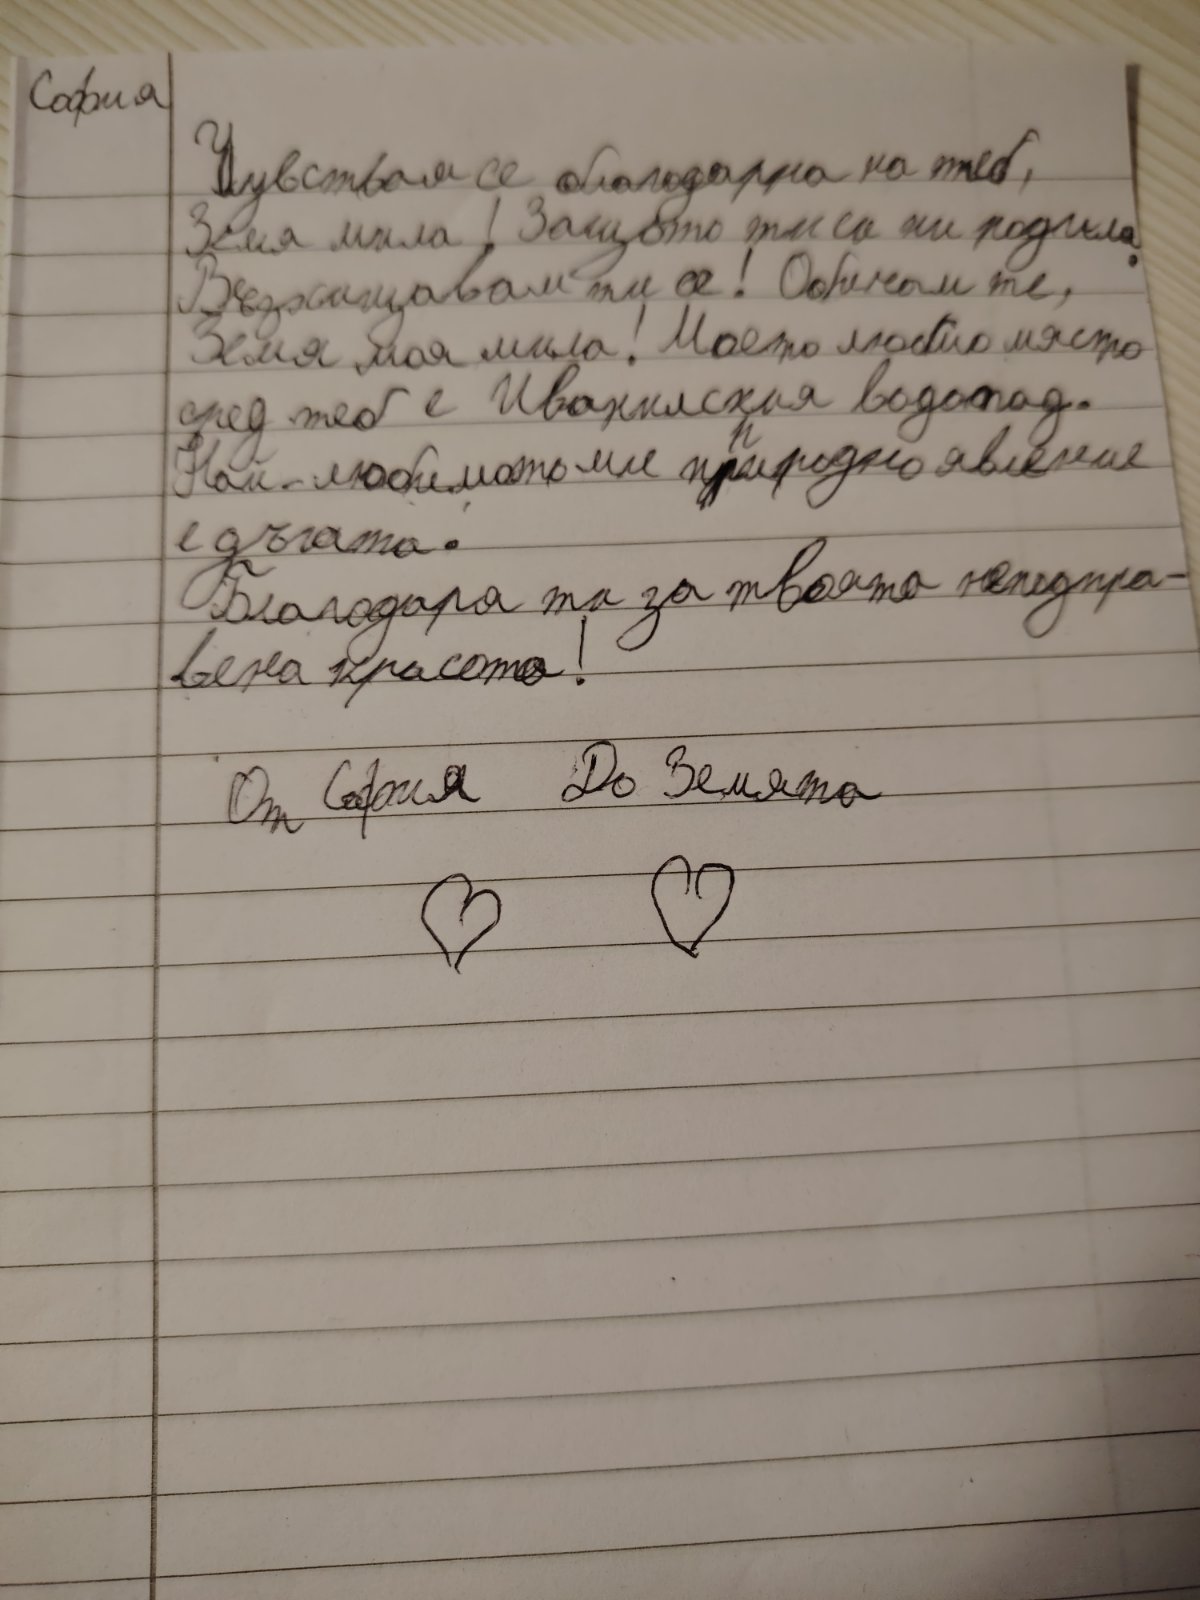 София
Чувствам се благодарна на теб,
Земя мила! Защото ти си ни родила.
Възхищавам ти се! Обичам те,
Земя моя мила! Моето любимо място
сред теб е водопад.
Най-любимото ми природно явление
е дъгата.
Благодаря ти за твоята неподпра-
вена красота!
От София До Земята